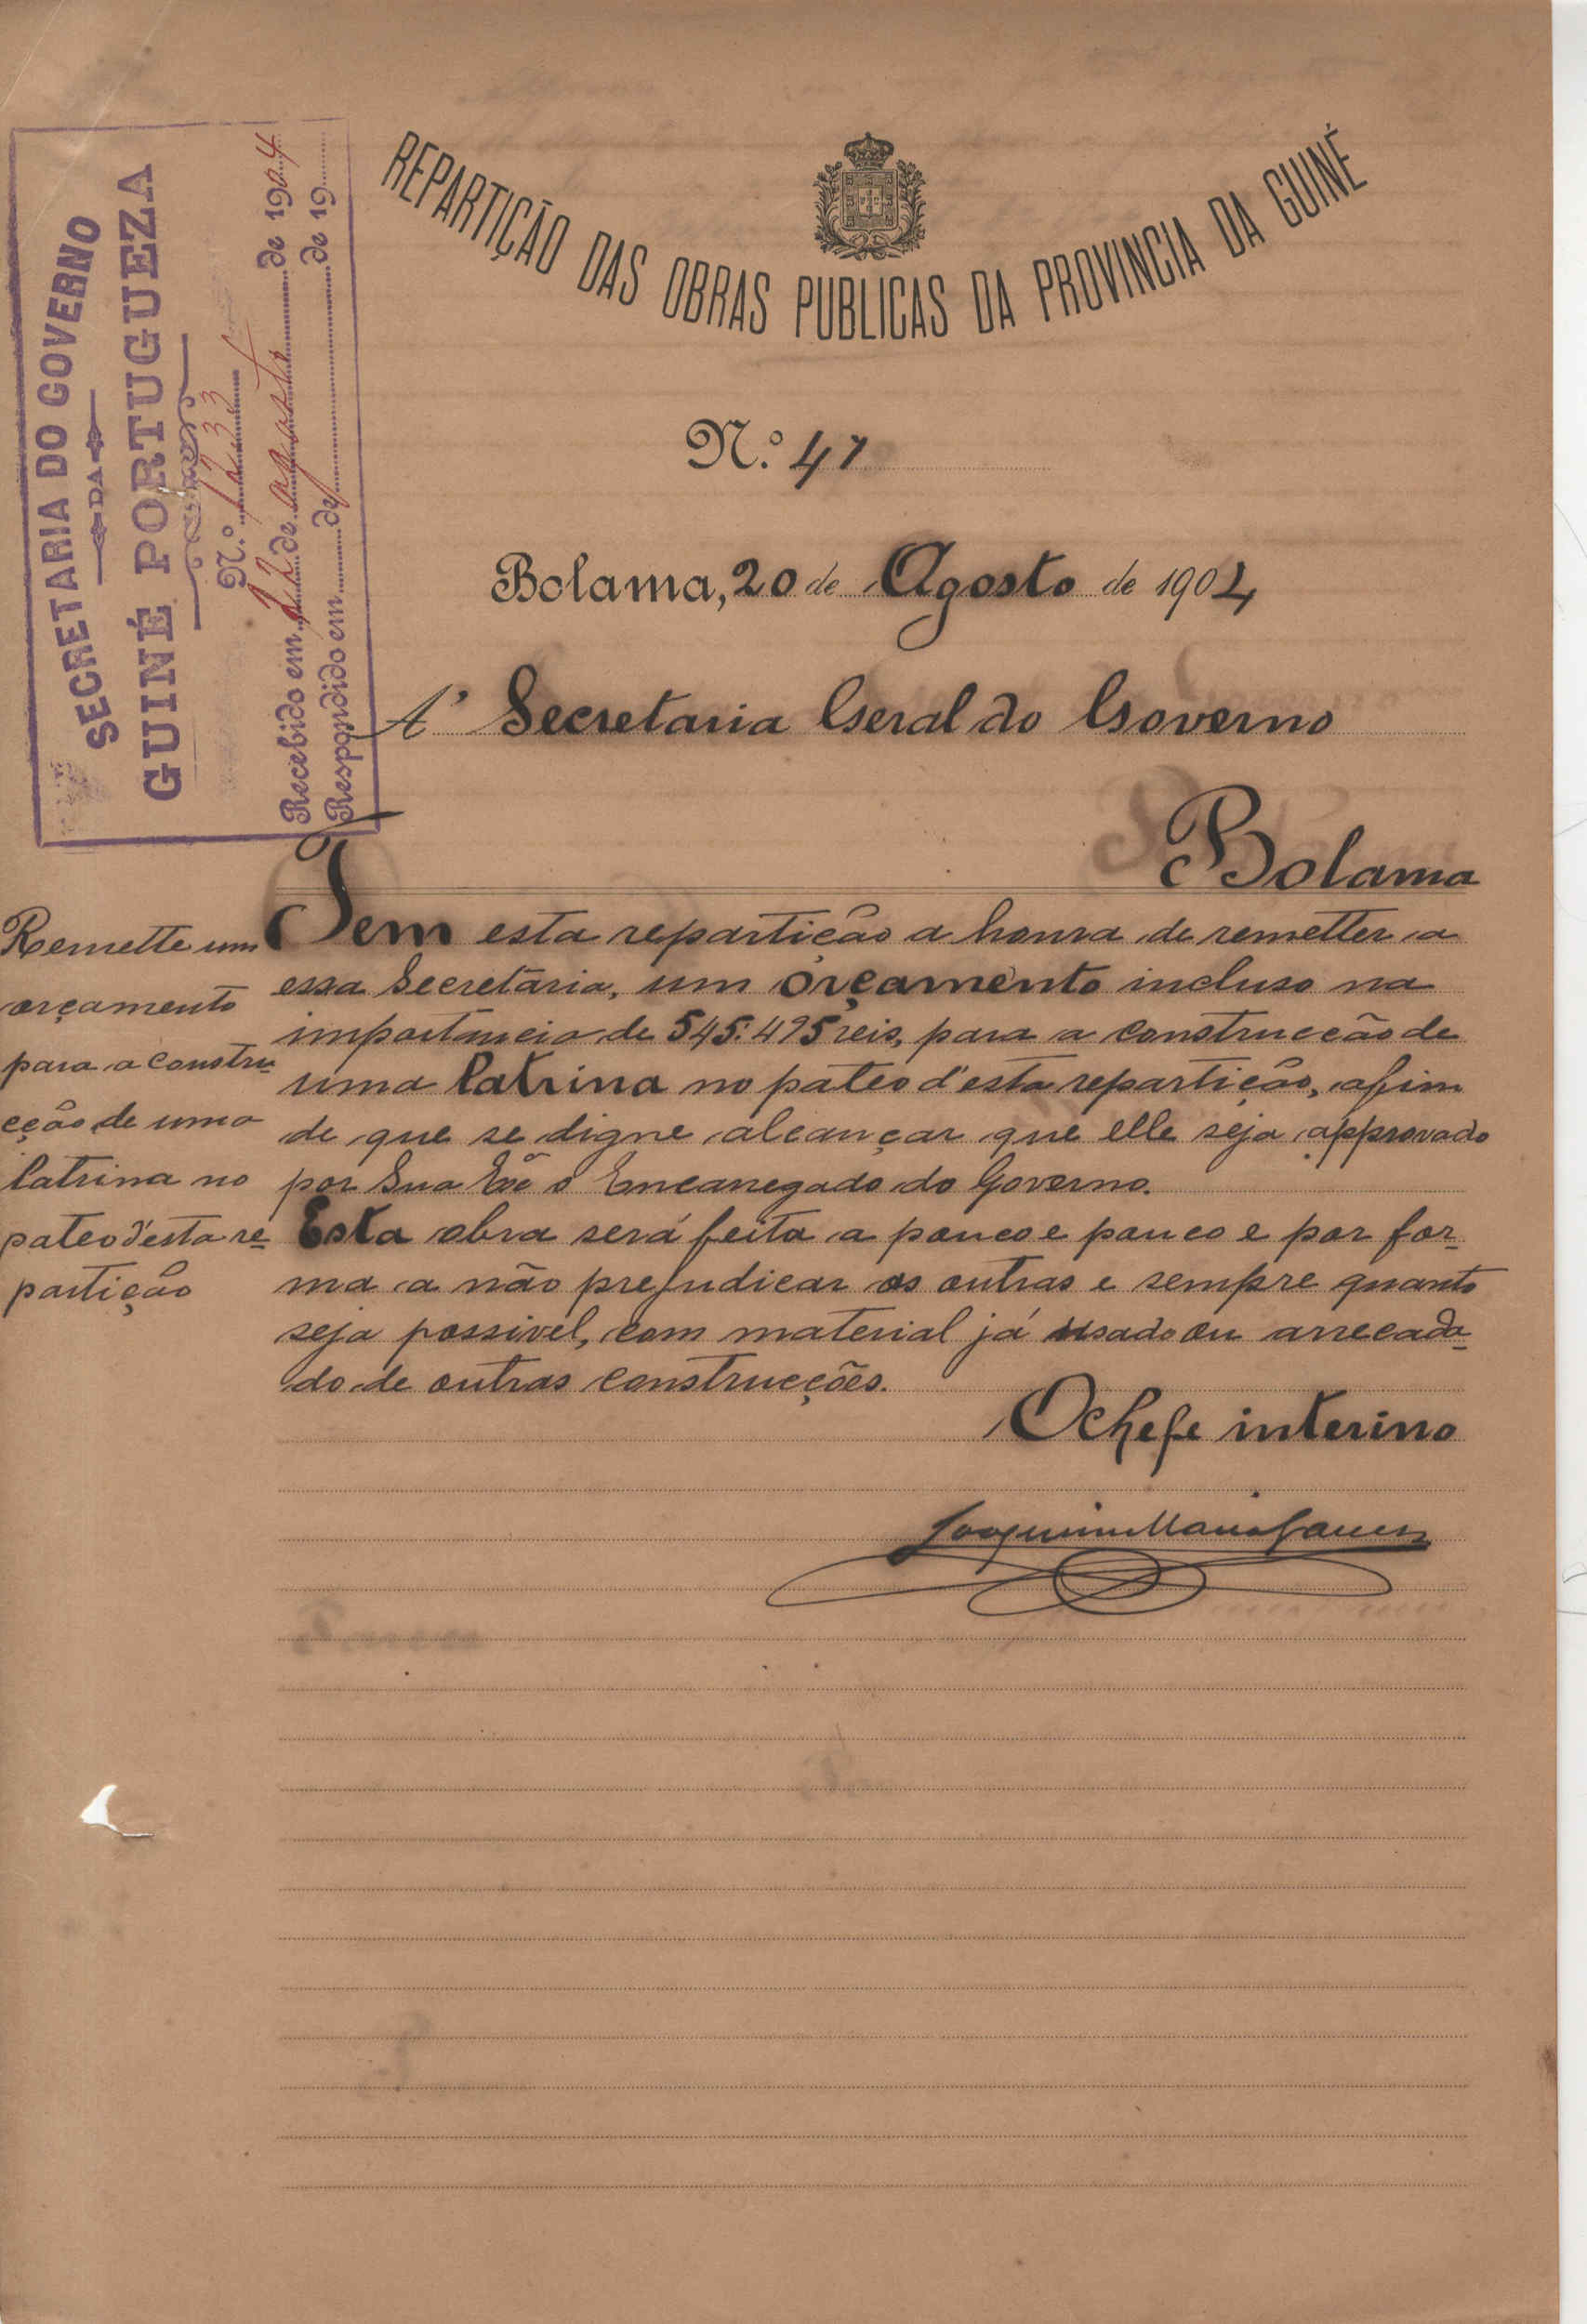 REPARTIÇÃO DAS OBRAS PUBLICAS DA PROVINCIA DA GUINÉ
SECRETARIA DO GOVERNO
DA
GUINÉ PORTUGUEZA
N.º 1233
Recebido em 22 de agosto de 1904
Respondido em de de 19
N.º 41
Bolama, 20 de Agosto de 1904
A' Secretaria Geral do Governo
Bolama
Remette um
orçamento
para a constru-
cção de uma
latrina no
pateo d'esta re-
partição
Tem esta repartição a honra de remetter a
essa Secretaria, um orçamento incluso na
importancia de 545:495 reis, para a construcção de
uma latrina no pateo d'esta repartição, afim
de que se digne alcançar que elle seja approvado
por Sua Exª o Encarregado do Governo.
Esta obra será feita a pouco e pouco e por for-
ma a não prejudicar as outras e sempre quanto
seja possivel, com material já usado ou arrecada-
do de outras construcções.
O chefe interino
Joaquim Maria